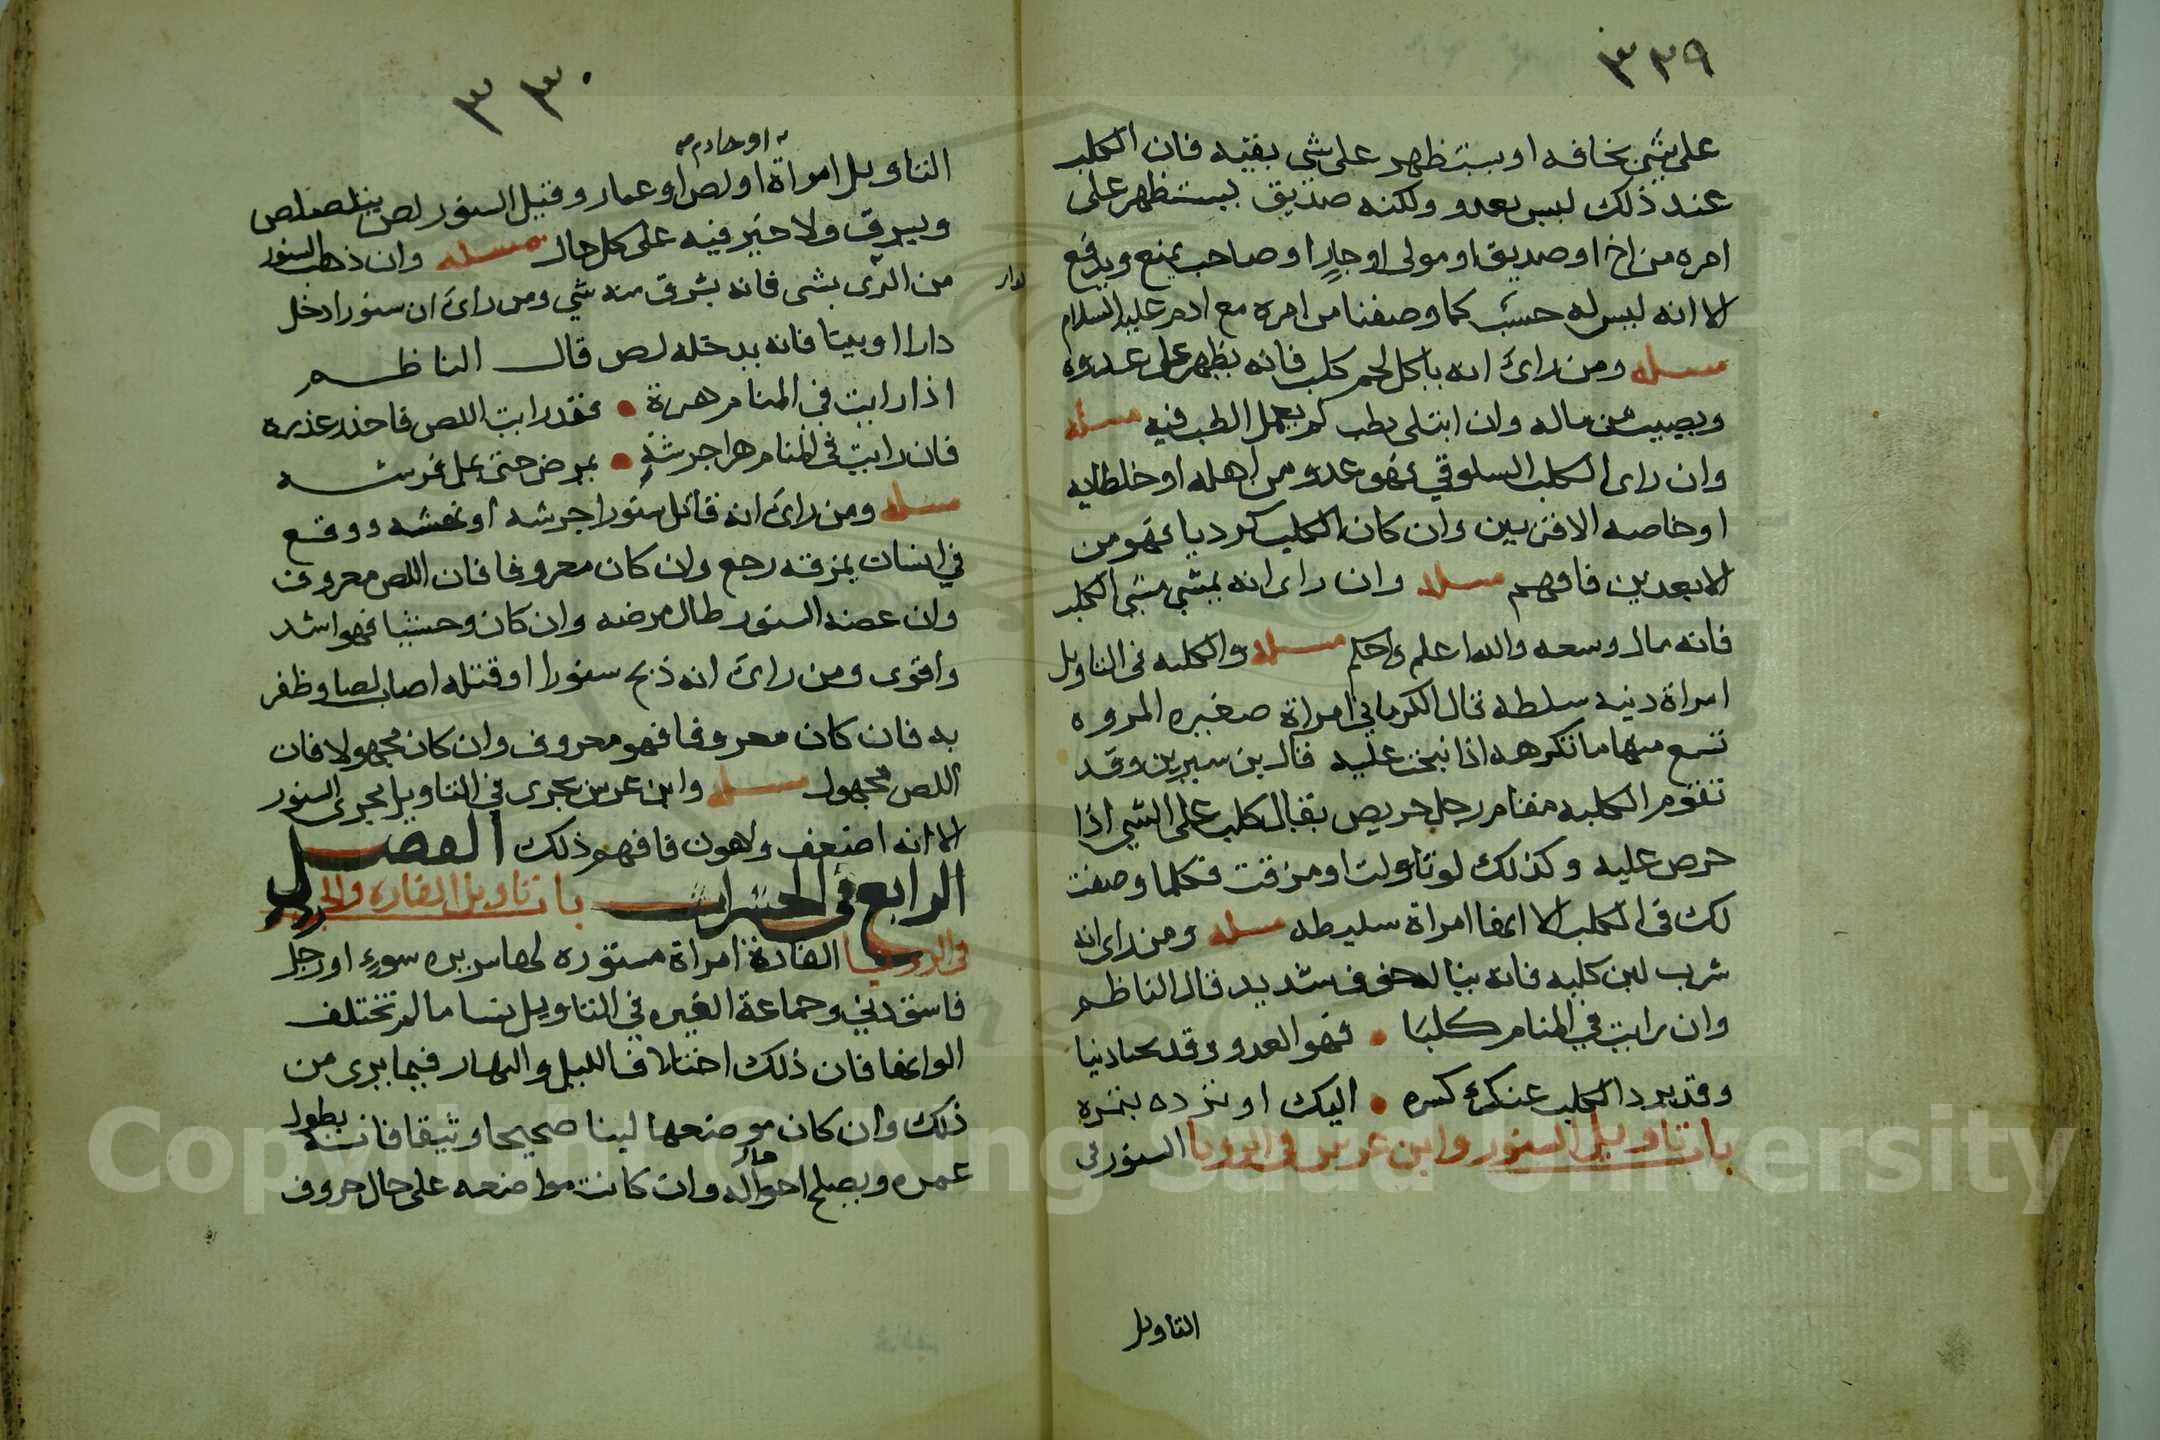 ٣٢٩
على شي يخافه او يستظهر على شي بقيه فان الكلب
عند ذلك ليس بعدو ولكنه صديق يستظهر على
امره من اخ او صديق او مولى او جار او صاحب يمنع ويدفع
الا انه ليس له حسب كما وصفنا من امره مع ادم عليه السلام
مسله ومن راى انه ياكل لحم كلب فانه يظهر على عدوه
ويصيب من ماله وان ابتلى بطب لم يعمل الطب فيه مسله
وان راى الكلب السلوقي فهو عدو من اهله او خلطايه
او خاصه الاقربين وان كان الكلب كرديا فهو من
الابعدين فافهم مسله وان راى انه يمشي مشي الكلب
فانه مال وسعه والله اعلم واحكم مسله والكلبه في التاويل
امراة دنيه سلطه قال الكرماني امراة صغيره المروه
تسمع منها ما تكرهه اذا نبحت عليه قال بن سيرين وقد
تقوم الكلبه مقام رجل حريص يقال كلب على الشي اذا
حرص عليه وكذلك لو تاولت او مزقت فكلما وصفت
لك في الكلب الا انها امراة سليطه مسله ومن راى انه
شرب لبن كلبه فانه يناله خوف شديد قال الناظم
وان رايت في المنام كلبا • فهو العدو وقد
وقد يرد الكلب عنك كسره • اليك او ترده
باب تاويل السنور وابن عرس في الرويا السنور في
التاويل
٣٣٠
او خادم صح
التاويل امراة او لص او عمار وقيل السنور لص يتلصلص
ويسرق ولا خير فيه على كل حال مسله وان ذهب السنور
من الدار بشي فانه يسرق منه شي ومن راى ان سنورا دخل
دار
دارا او بيتا فانه يدخله لص قال الناظم
اذا رايت في المنام هرة • فقد رايت اللص فاحذر غدره
فان رايت في المنام هرا جرشه • بمرض حتى يمل فرشه
مسله ومن راى انه قاتل سنورا جرشه او نهشه ووقع
في انسان يمزقه رجع وان كان معروفا فان اللص معروف
وان عضه السنور طال مرضه وان كان وحشيا فهو اشد
واقوى ومن راى انه ذبح سنورا او قتله اصاب لصا وظفر
به فان كان معروفا فهو معروف وان كان مجهولا فان
اللص مجهول مسله وابن عرس يجري في التاويل مجرى السنور
الا انه اضعف واهون فافهم ذلك الفصل
الرابع في الحشرات باب تاويل الفاره والجرذ
في الرويا الفارة امراة مستوره لها سريره سوء او رجل
فاسق دني وجماعة الغيره في التاويل نسا ما لم تختلف
الوانها فان ذلك اختلاف الليل والنهار فيما يرى من
ذلك وان كان موضعها لينا صحيحا وثيقا فانه يطول
عمره ويصلح احواله وان كانت مواضعه على حال حروف
Copyright © King Saud University